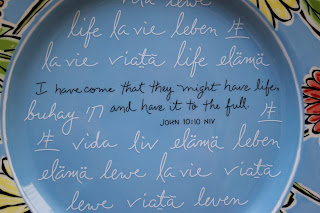 vida lewe
life la vie leben 生
la vie viaţă life elämä
I have come that they might have life,
and have it to the full.
JOHN 10:10 NIV
buhay חי 生
生 vida liv elämä leben
elämä lewe la vie viaţă
lewe viaţă leven